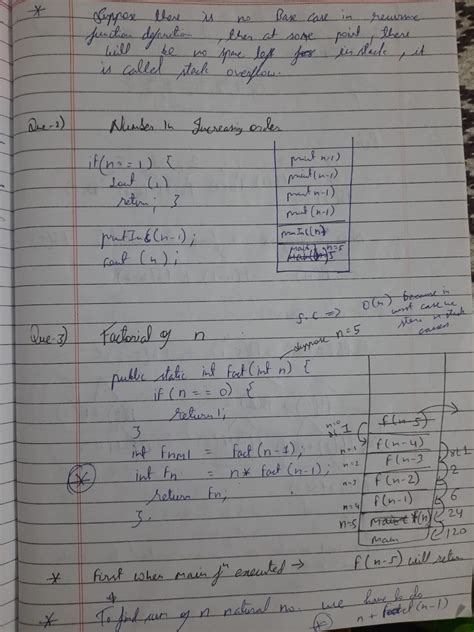 * Suppose there is no Base case in recursive
function definition, then at some point, there
will be no space left in stack, it
is called stack overflow.
Que-2) Number in Increasing order
if (n == 1) {
sout (1)
return; }
printInc(n-1);
sout (n);
print n-1)
print(n-1)
print n-1)
print (n-1)
printInc(n)
main() n=5
S.C => O(n) because in
worst case we
store n stack
Que-3) Factorial of n
suppose n=5
public static int Fact (int n) {
if (n == 0) {
return 1;
}
int Fnm1 = fact (n-1);
* int Fn = n* fact (n-1);
return Fn;
}
n=0
n=1
n=2
n=3
n=4
n=5
f(n-5)
f(n-4)
f(n-3
f(n-2)
f(n-1)
f(n)
main
1
x1 1
2
6
24
120
* First when main fn executed → f(n-5) will return
* To find sum of n natural no. we have to do
* n + fact(n-1)